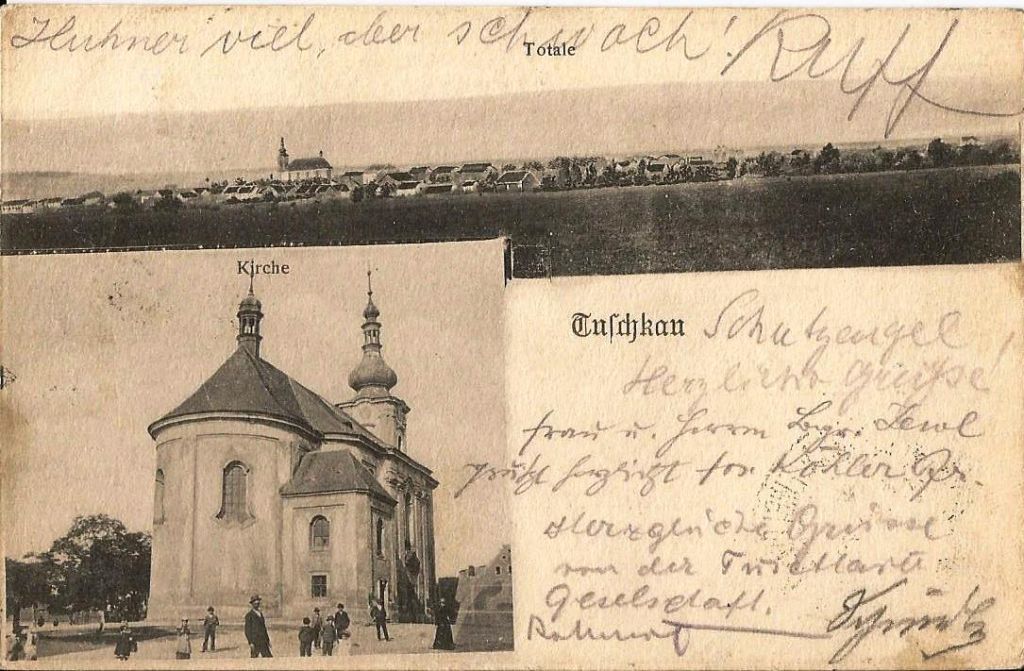 Huhner viel, aber schwach! Ruff
Totale
Kirche
Tuschkau
Schutzengel
Herzliche Grüsse
Frau u. Herrn
herzlichst Köhler
Herzgliche Grüsse
von der
Geselsdaft.
Schmidt